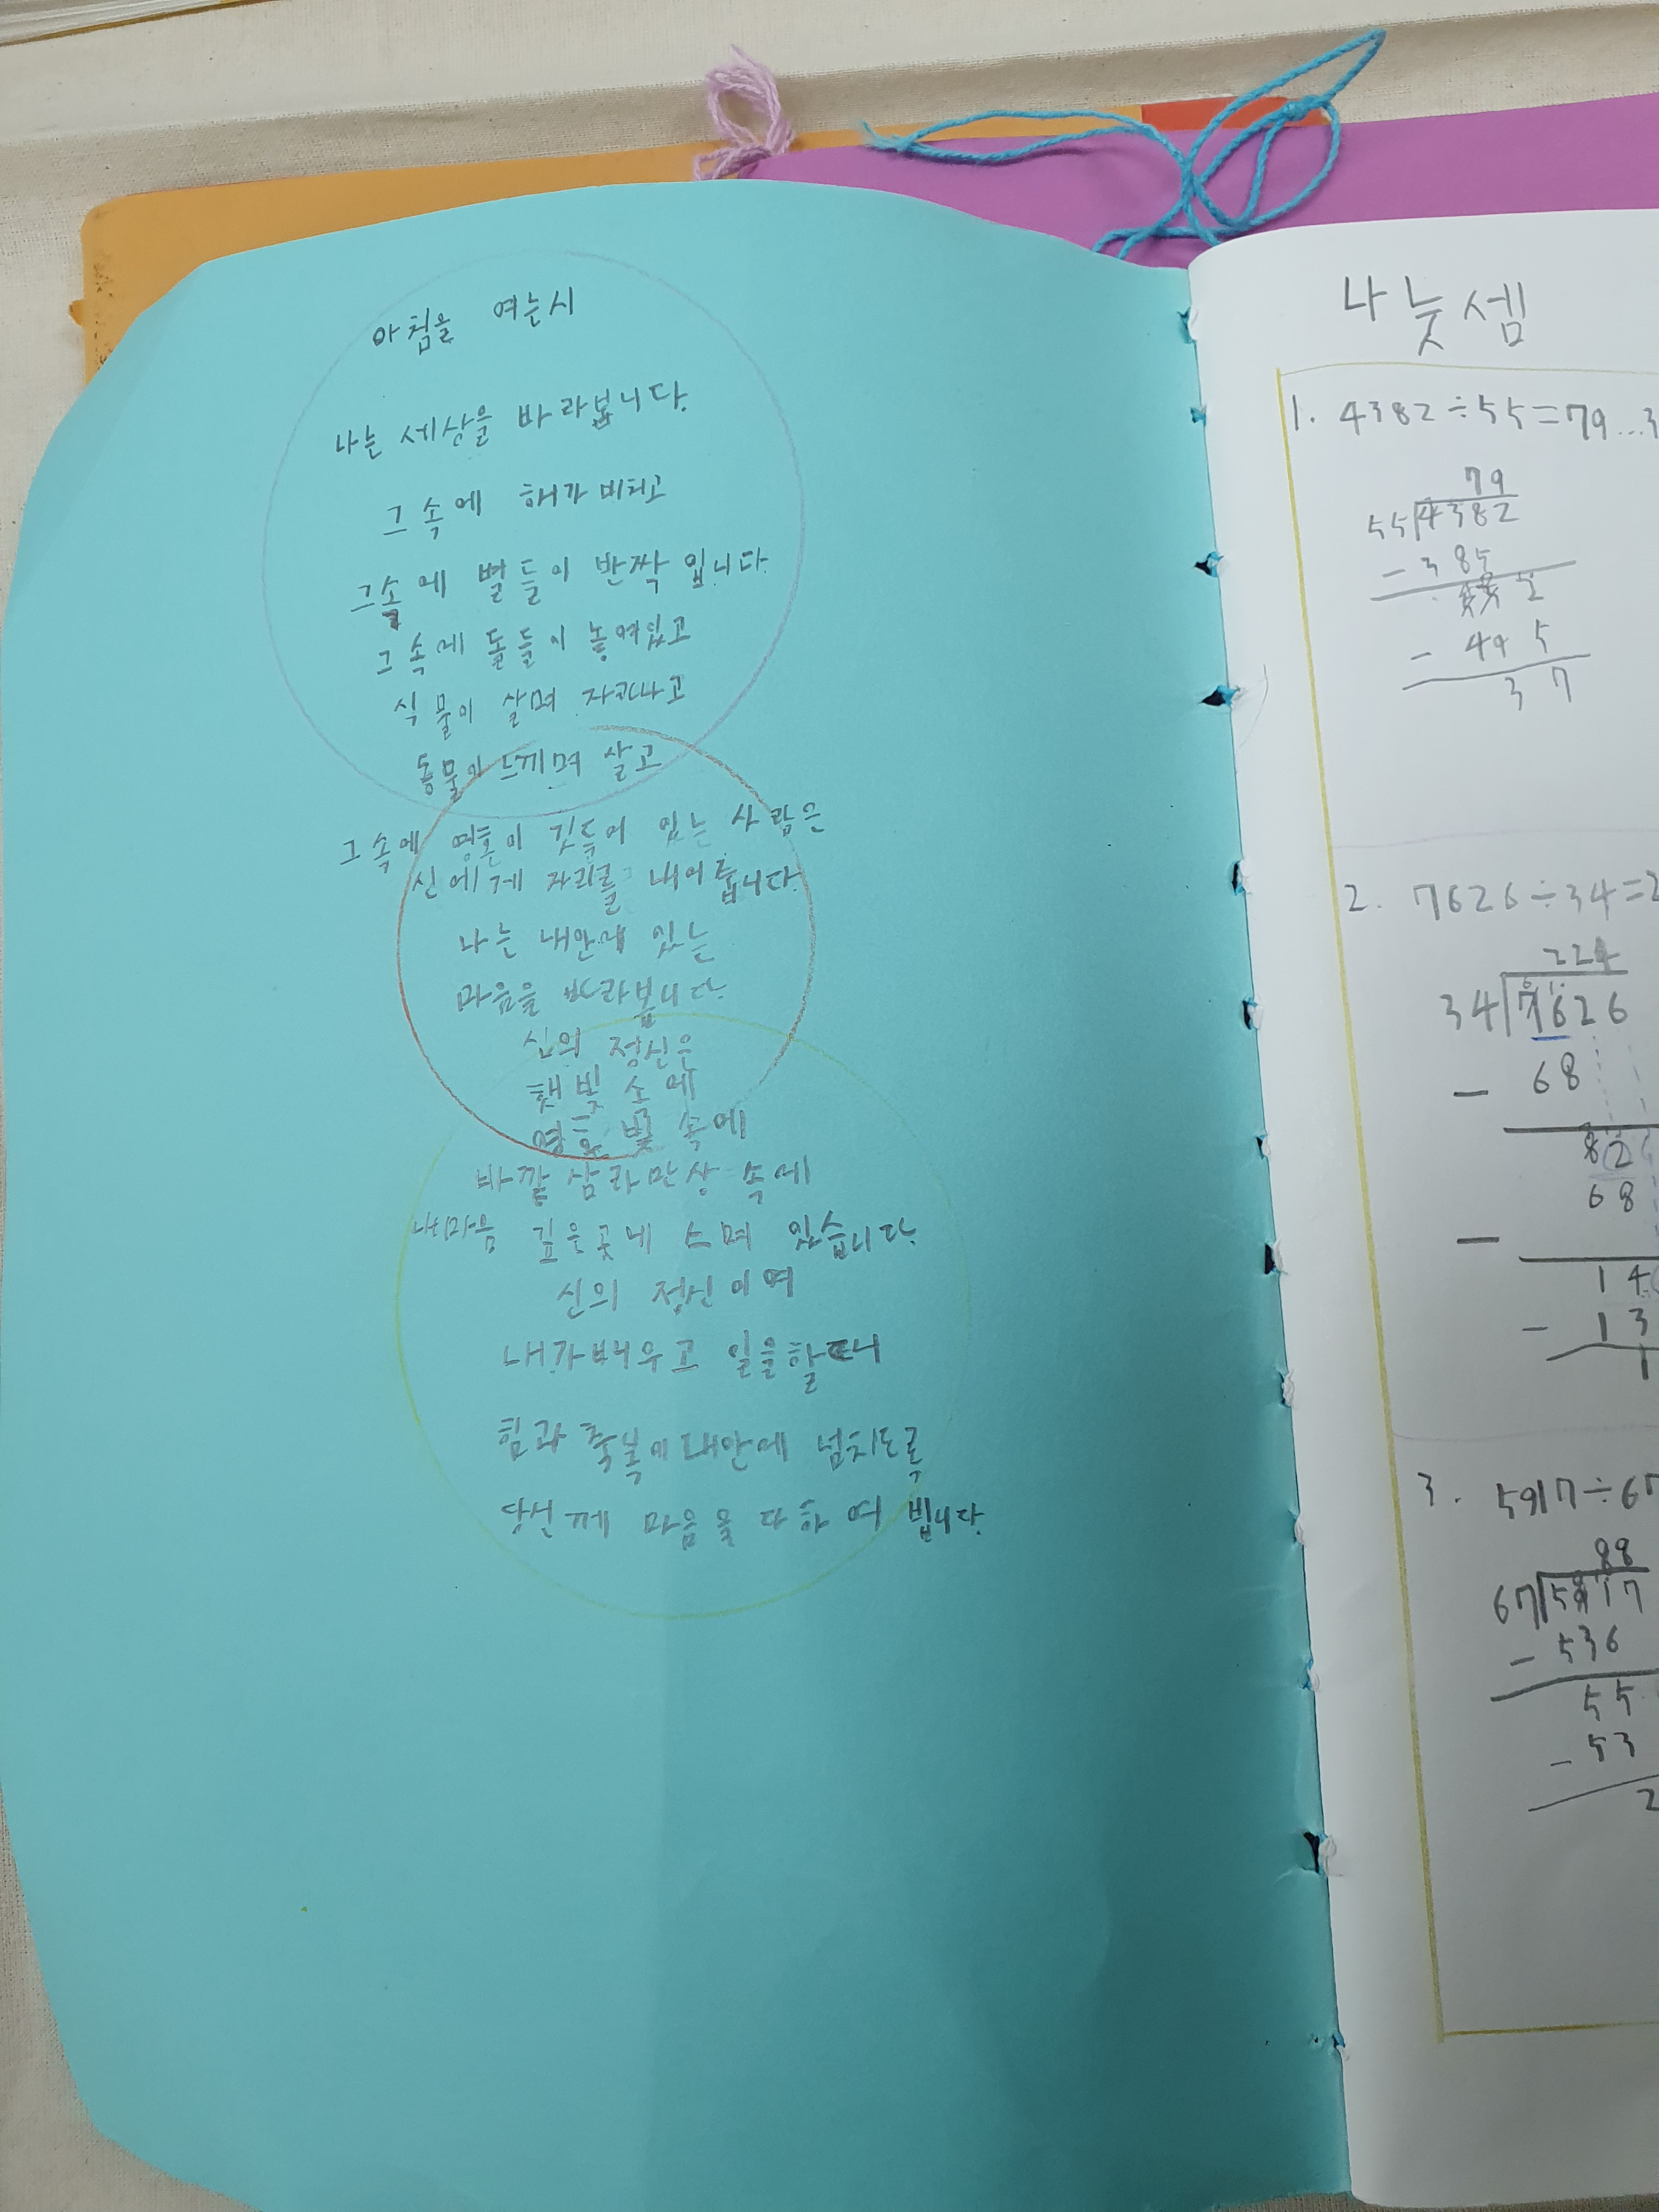 아침을 여는시
나는 세상을 바라봅니다.
그 속에 해가 비치고
그속에 별들이 반짝 입니다
그 속에 돌들이 놓여있고
식물이 살며 자라나고
동물이 느끼며 살고
그속에 영혼이 깃들어 있는 사람은
신에게 자리를 내어줍니다.
나는 내안에 있는
마음을 바라봅니다.
신의 정신은
햇빛 소에
영혼 빛 속에
바깥 삼라만상 속에
내마음 깊은곳에 스며 있습니다.
신의 정신이여
내가배우고 일을할때니
힘과 축복이 내안에 넘치도록
당신께 마음을 다하여 빕니다.
나눗셈
1. 4382÷55=79...3
79
55 4382
- 385
- 495
37
2. 7626÷34=2
224
34 7626
- 68
82
- 68
14
- 13
1
3. 5917÷67
88
67 5917
- 536
55
- 53
2